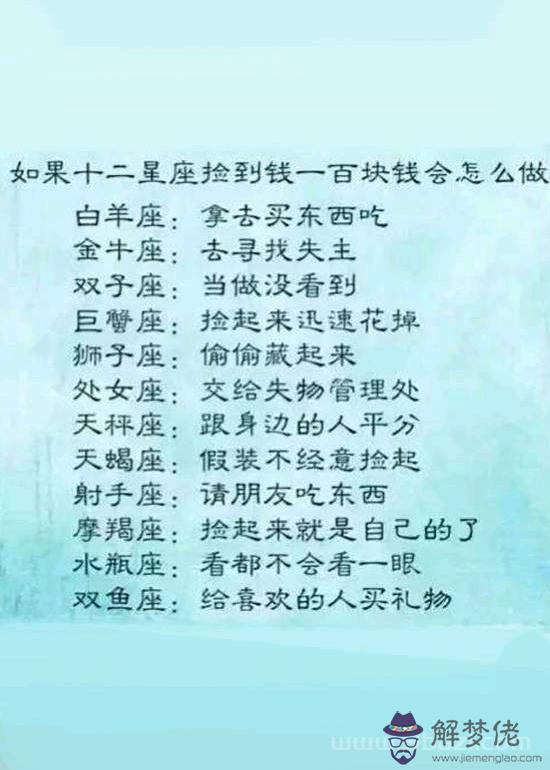 如果十二星座捡到钱一百块钱会怎么做
白羊座：拿去买东西吃
金牛座：去寻找失主
双子座：当做没看到
巨蟹座：捡起来迅速花掉
狮子座：偷偷藏起来
处女座：交给失物管理处
天秤座：跟身边的人平分
天蝎座：假装不经意捡起
射手座：请朋友吃东西
摩羯座：捡起来就是自己的了
水瓶座：看都不会看一眼
双鱼座：给喜欢的人买礼物
解梦佬
www.jiemenglao.com